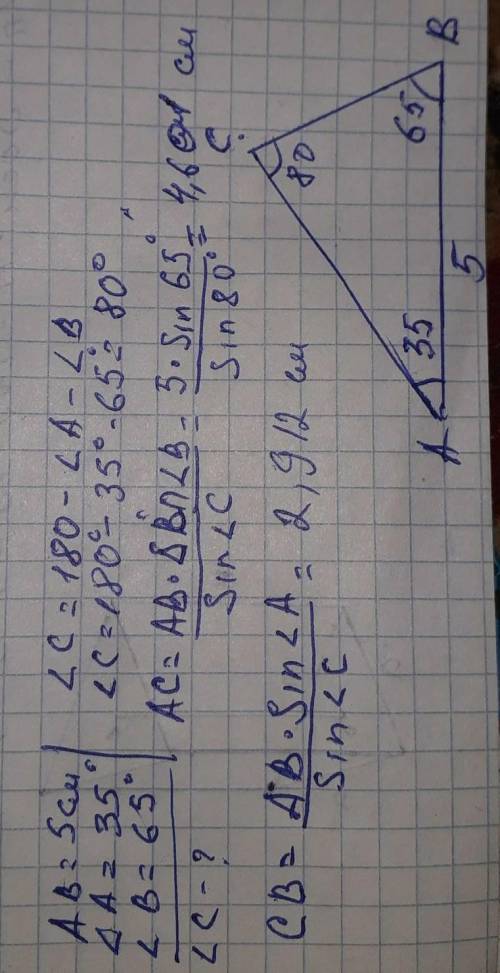 AB = 5см
∠A = 35°
∠B = 65°
∠C - ?
∠C = 180 - ∠A - ∠B
∠C = 180° - 35° - 65° = 80°
AC = AB · Sin∠B / Sin∠C = 5 · Sin 65° / Sin 80° = 4,6 см
CB = AB · Sin∠A / Sin∠C = 2,912 см
A
35
5
65
B
80
C